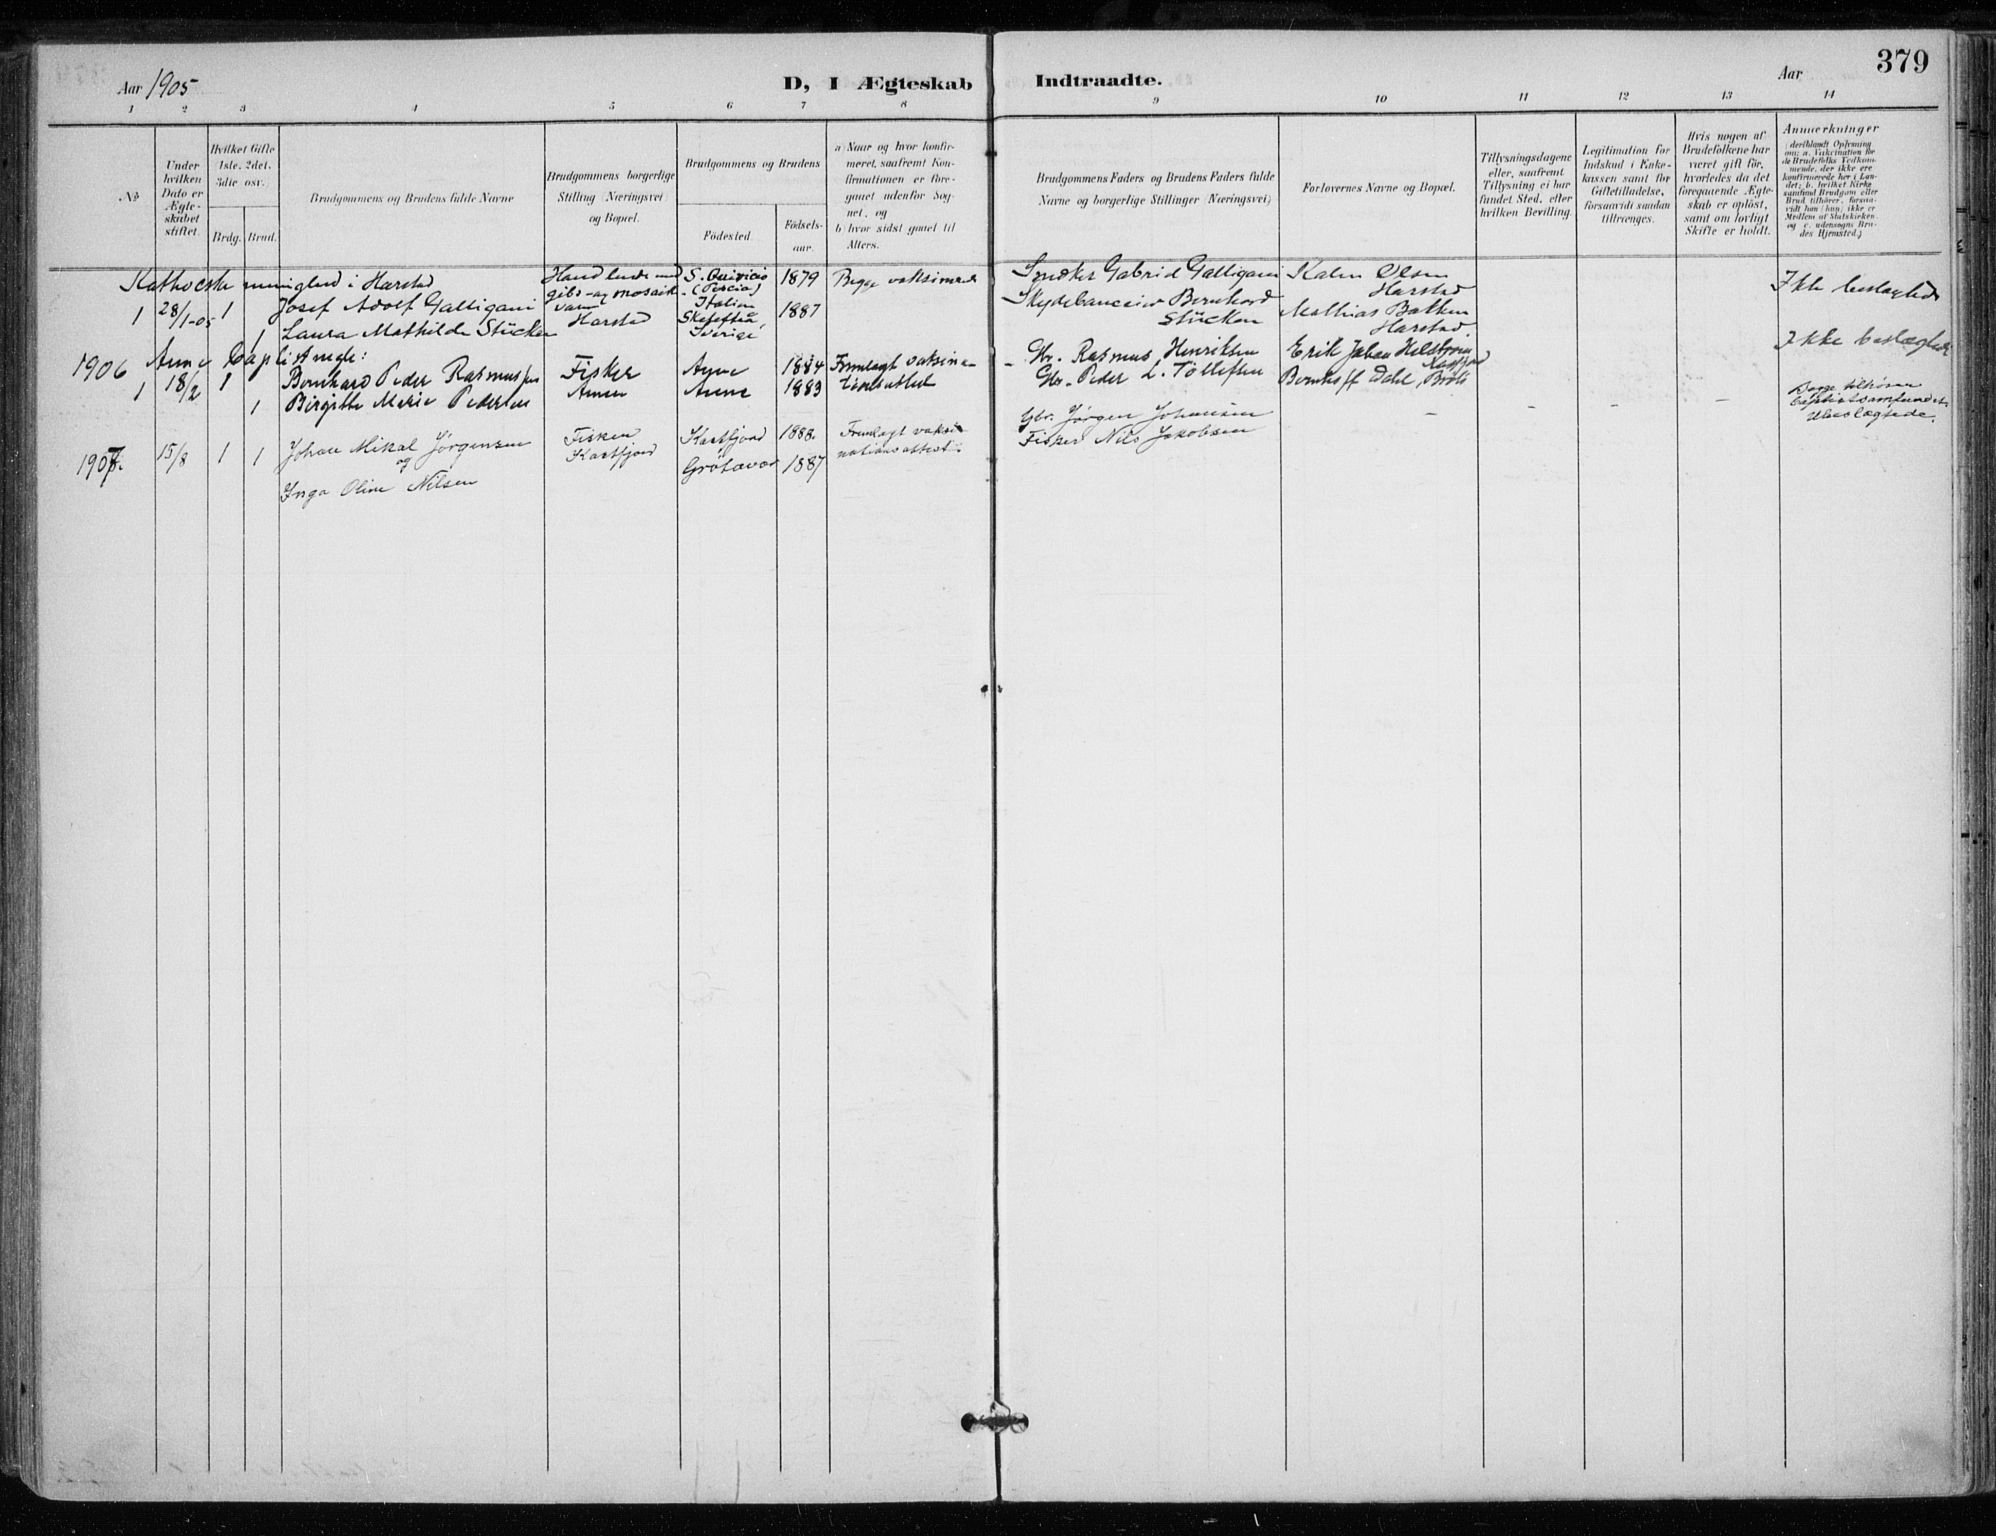 Aar 1905
D, I Ægteskab Indtraadte.
Aar
379
1 2 3 4 5 6 7 8 9 10 11 12 13 14
№
Under hvilken Dato er Ægte-skabet stiftet.
Hvilket Gifte 1ste, 2det, 3die osv.
Brdg. Brud.
Brudgommens og Brudens fulde Navne
Brudgommens borgerlige Stilling (Næringsvei) og Bopæl.
Brudgommens og Brudens
Fødested
Fødsels-aar.
a) Naar og hvor konfir-meret, saafremt Kon-firmationen er fore-gaaet udenfor Sog-net, og
b) hvor sidst gaaet til Alters.
Brudgommens Faders og Brudens Faders fulde Navne og borgerlige Stillinger (Næringsvei)
Forlovernes Navne og Bopæl.
Tillysningsdagene eller, saafremt Tillysning ei har fundet Sted, efter hvilken Bevilling.
Legitimation for Indskud i Enke-kassen samt for Giftetilladelse, forsaavidt saadan tiltrænges.
Hvis nogen af Brudefolkene har været gift før, hvorledes da det foregaaende Ægte-skab er opløst, samt om lovligt Skifte er holdt.
Anmerkninger (deriblandt Oplysning om: a. Vakcination for de Brudefolks Vedkom-mende, der ikke ere konfirmerede her i Lan-det; b. hvilket Kirke-samfund Brudgom eller Brud tilhører, forsaa-vidt han (hun) ikke er Medlem af Statskirken, og c. udensogns Bru-des Hjemsted.)
Katholske menighed i Harstad
1 28/1-05 1 Josef Adolf Galligani
1 Laura Mathilde Stücken
Handlende med gibs- og mosaik-varer Harstad
S. (Pescia) Italien 1879
Skelefteå Sverige 1887
Begge vaksinerede
Gabriel Galligani
Bernhard Stücken
Karen Olsen Harstad
Mathias Bakken Harstad
Ikke beslægtede
1906
1 18/2 1 Bernhard Peder Rasmussen
1 Birgitte Marie Pedersen
Fisker
1884
1883
Fremlagt vaksina-tionsattest
Gbr. Rasmus Henriksen
Gbr. Peder L. Tollefsen
Erik Johan
Bernhoff Dahl,
Ikke beslægtede
1907. 15/8 1 1 Johan Mikal Jørgensen
og
Inga Oline Nilsen
Fisker
Kastfjord
Kastfjord 1888.
Grøtavær 1887
Fremlagt vaksi-nationsattest.
Gbr. Jørgen Johansen
Fisker Nils Jakobsen
– – – –
Begge tilhører Baptistsamfundet. Ubeslægtede.